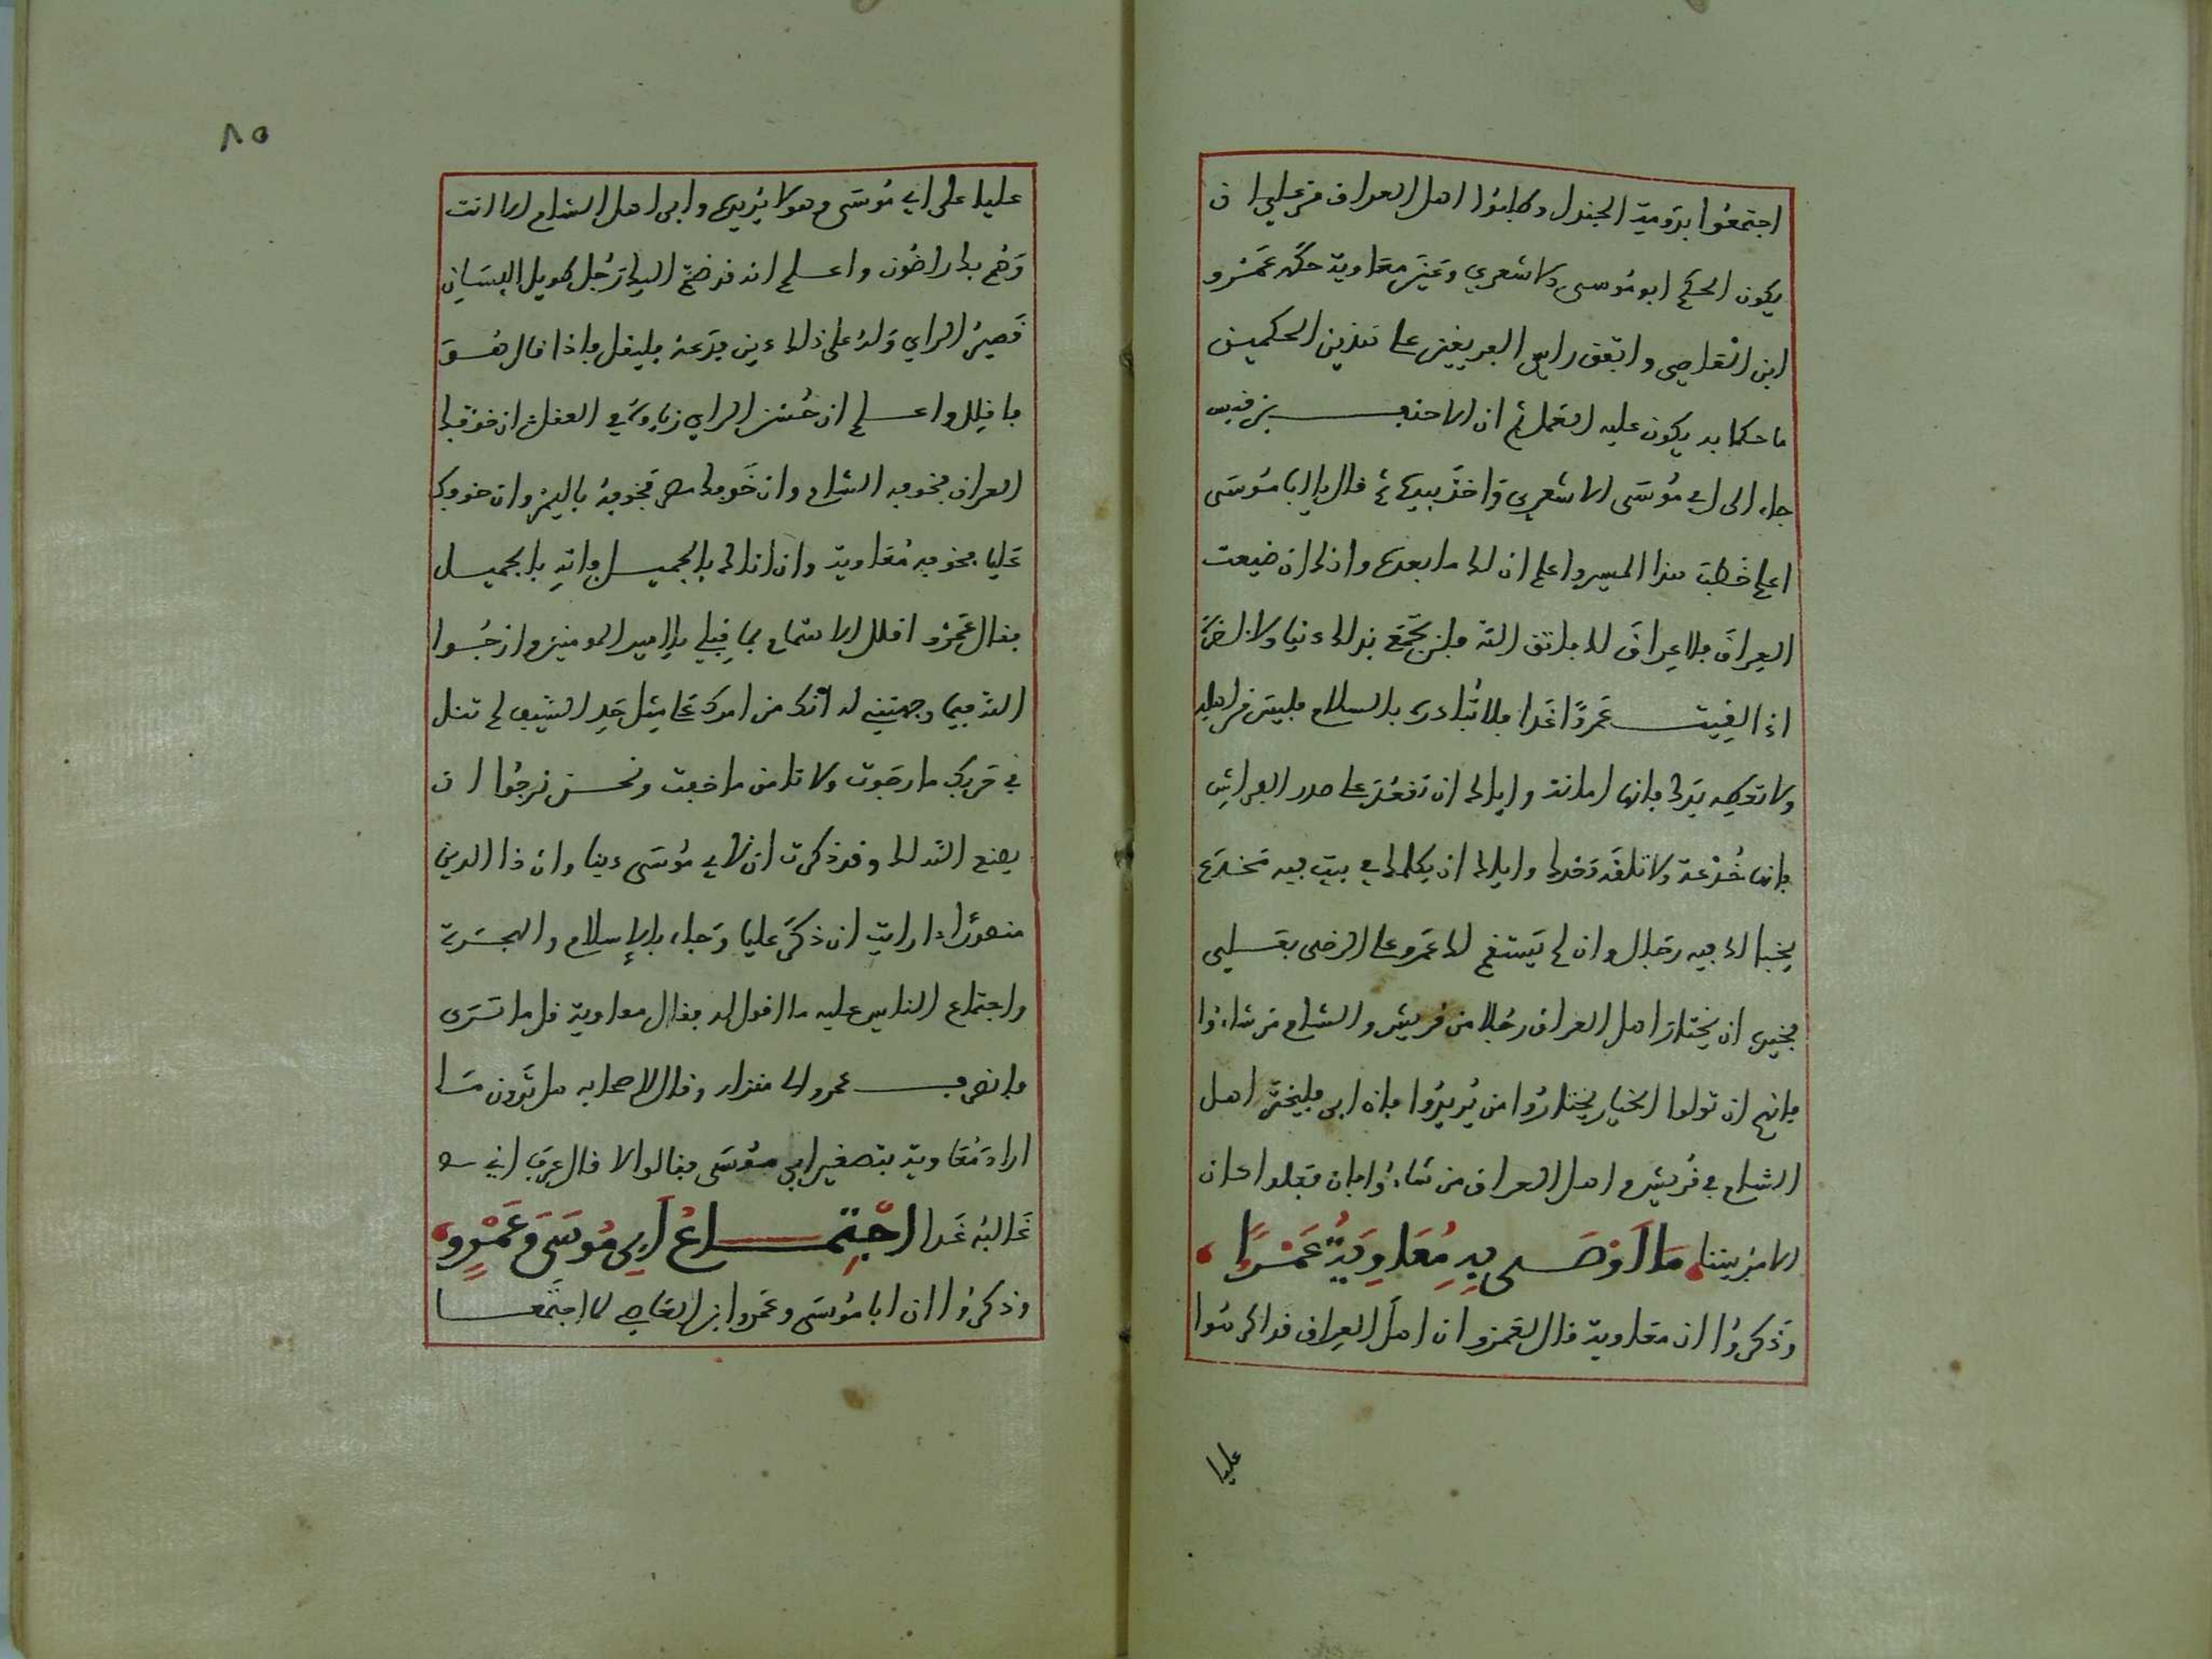 اجتمعوا بدومة الجندل وطلبوا اهل العراق من علي ان
يكون الحكم ابو موسى الاشعري وعين معاوية حكمه عمرو
ابن العاصي واتفق راس الفريقين على تقديم الحكمين
ما حكما به يكون عليه العمل ثم ان الاحنف بن قيس
جاء الى ابي موسى الاشعري واخذ بيده ثم قال يا ابا موسى
اعلم خطب هذا المسير واعلم ان له ما بعده وانك ان ضيعت
العراق فلا عراق لك فاتق الله فلن تجمع بذلك دنيا ولا اخرة
اذا لقيت عمروا غدا فلا تبادره بالسلام فليس من اهله
ولا تعطه يدك فانها امانة واياك ان تقعد على صدر الفراش
فانها خدعة ولا تلقه وحدك واياك ان يكلمك في بيت فيه مخدع
يخبا لك فيه رجال وان لم يستقم لك عمرو على الرضى بعلي
فخيره ان يختار اهل العراق رجلا من قريش والشام من شاءوا
فانهم ان تولوا الخيار يختاروا من يريدوا فان ابى فليختر اهل
الشام في قريش واهل العراق من شاءوا فان فعلوا كان
الامر بيننا ما اوصى به معاوية عمرا
وذكروا ان معاوية قال لعمرو ان اهل العراق قد اكرهوا
عليا
٨٥
عليا على ابي موسى وهو لا يريده وابى اهل الشام الا انت
وهم بك راضون واعلم انه قد ضم اليك رجل طويل اللسان
قصير الراي وله على ذلك دين فدعه فليقل فاذا قال هو
ما قيل واعلم ان حسن الراي زيادة في العقل ان خوفك
العراق فخوفه الشام وان خوفك مصر فخوفه باليمن وان خوفك
عليا فخوفه معاوية وان اتاك بالجميل فاته بالجميل
فقال عمرو اقلل الاهتمام بما قبلي يا امير المومنين وارجوا
الله فيما وجهتني له انك من امرك على مثل حد السيف لم تنل
في حربك ما رجوت ولا تامن ما خفت ونحن نرجوا ان
يصنع الله لك وقد ذكرت ان لابي موسى دينا وان ذا الدين
منصور اارايت ان ذكر عليا وجاء بالاسلام والهجرة
واجتماع الناس عليه ما اقول له فقال معاوية قل ما ترى
فانصرف عمرو الى منزله وقال لاصحابه هل ترون ما
اراد معاوية بتصغير ابي موسى فقالوا لا قال عرف اني
غالبه غدا اجتماع ابي موسى وعمرو
وذكروا ان ابا موسى وعمروا بن العاصي لما اجتمعا